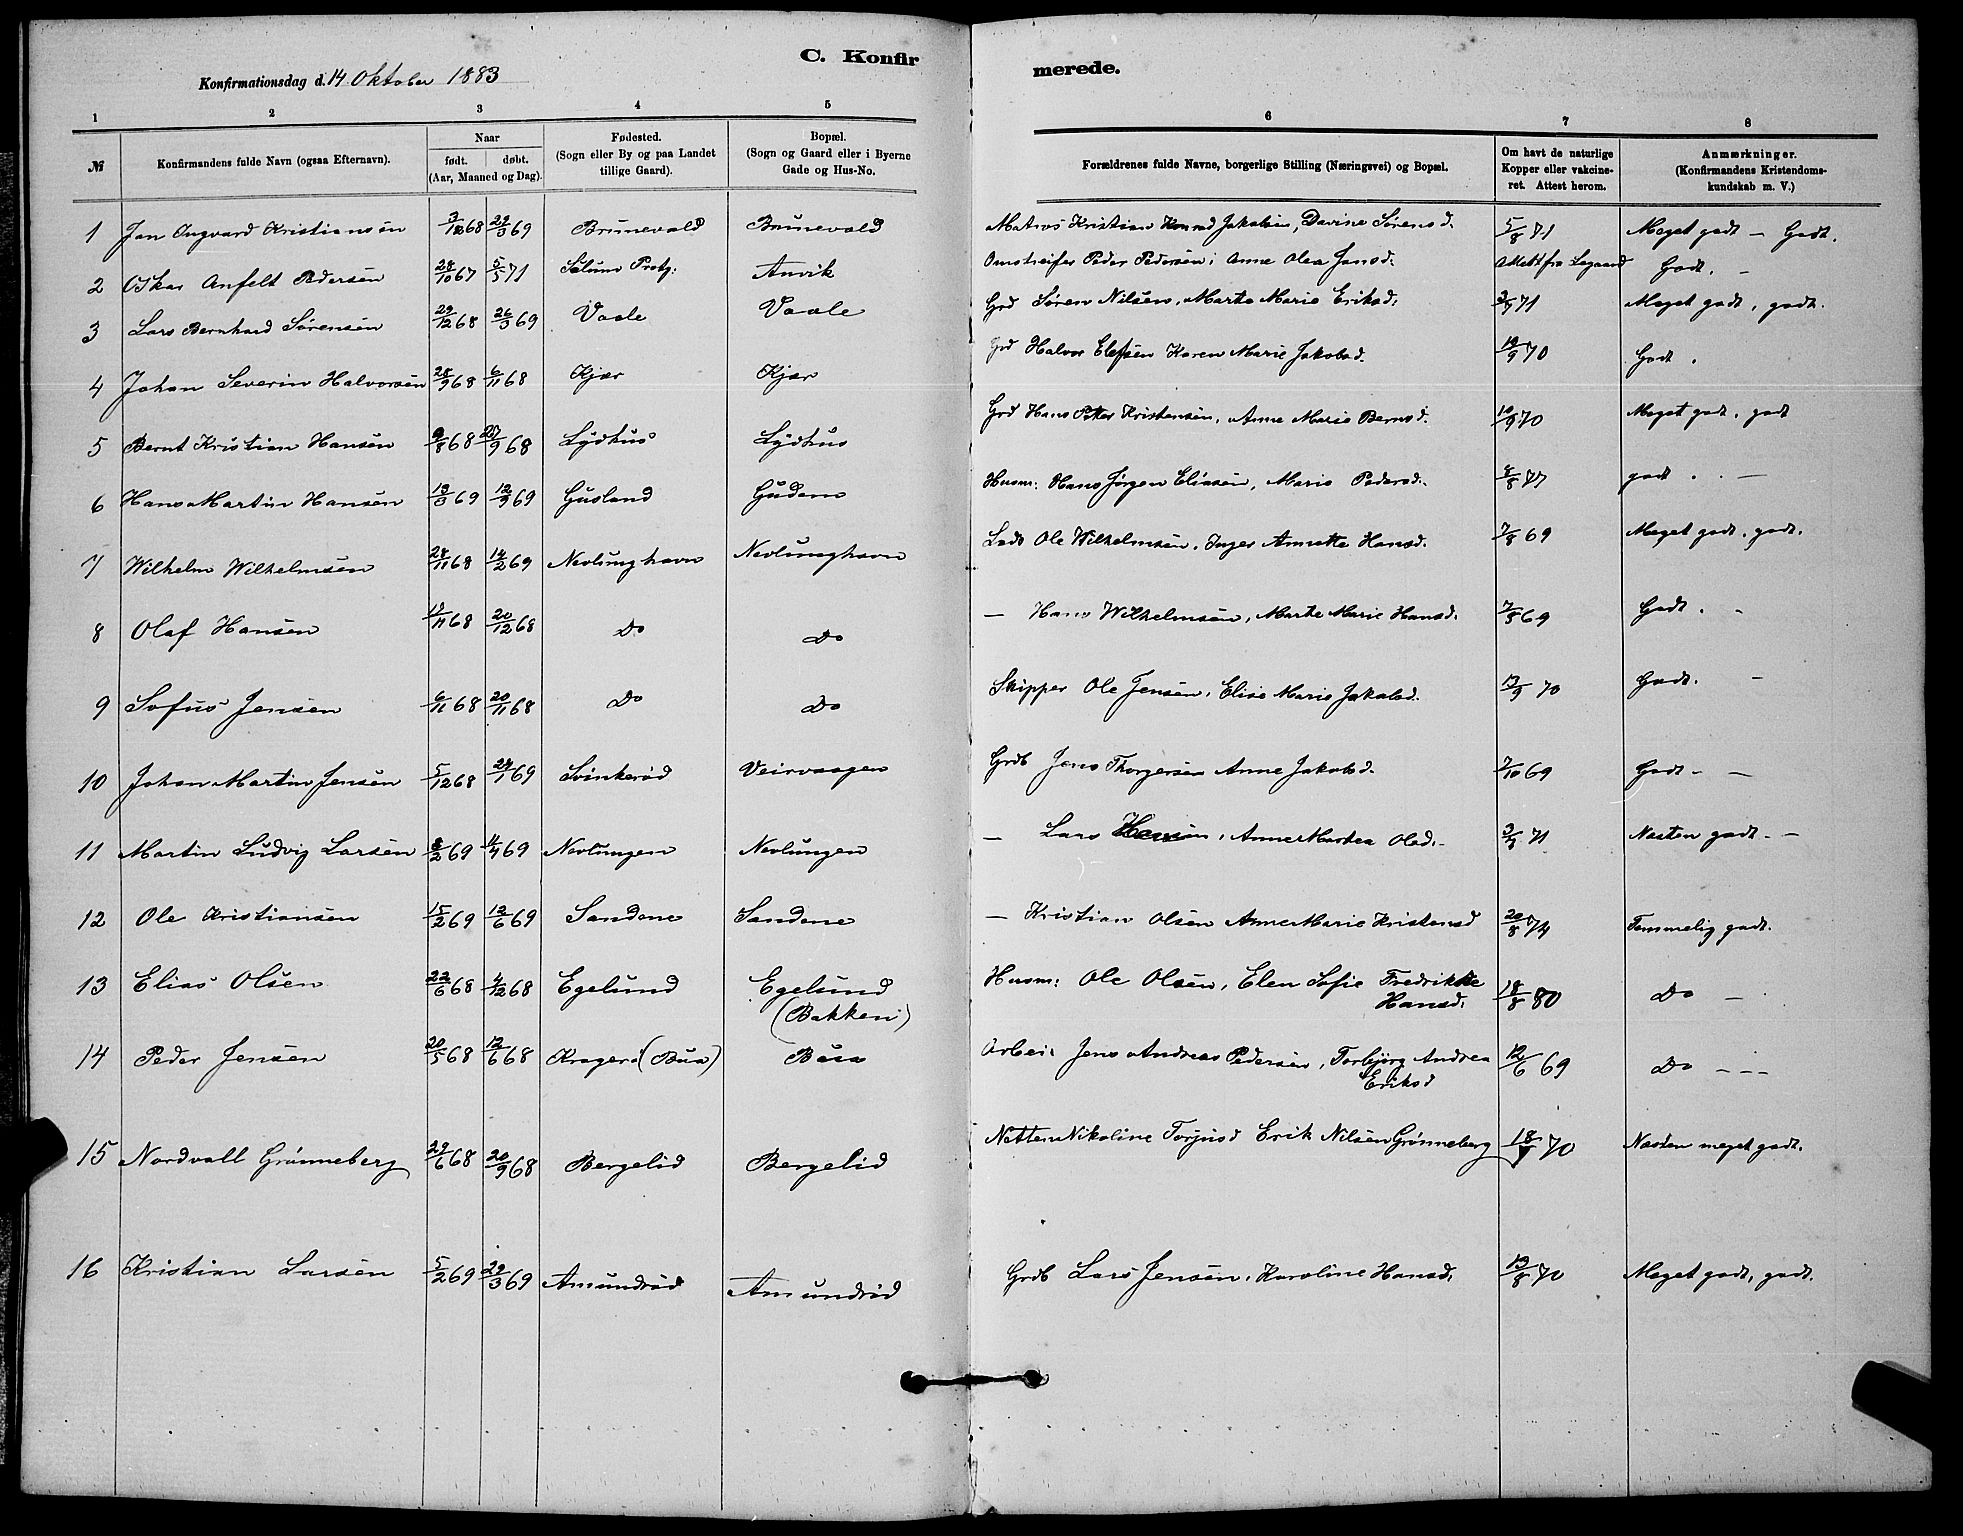 C. Konfirmerede.
Konfirmationsdag d. 14 Oktober 1883
1 2 3 4 5 6 7 8
№ Konfirmandens fulde Navn (ogsaa Efternavn). Naar født. døbt. (Aar, Maaned og Dag). Fødested. (Sogn eller By og paa Landet tillige Gaard). Bopæl. (Sogn og Gaard eller i Byerne Gade og Hus-No. Forældrenes fulde Navne, borgerlige Stilling (Næringsvei) og Bopæl. Om havt de naturlige Kopper eller vakcineret. Attest herom. Anmærkninger. (Konfirmandens Kristendomskundskab m. V.)
1 Jan Ingvard Kristiansen 3/12 68 29/3 69 Brunevald Brunevald Matros Kristian Konrad Jakobsen, Davine Sørensd. 5/8 71 Meget godt – Godt.
2 Oskar Anfelt Pedersen 28/10 67 5/5 71 Anvik Omstreifer Peder Pedersen; Anne Olea Jensd. Godt. –
3 Lars Bernhard Sørensen 29/12 68 26/3 69 Vaale Vaale Grd Søren Nilsen, Marte Marie Eriksd. 71 Meget godt, godt.
4 Johan Severin Halvorsen 28/9 68 6/11 68 Kjær Kjær Grd Halvor Elefsen Karen Marie Jakobsd. 19/9 70 Godt.
5 Bernt Kristian Hansen 9/8 68 27/9 68 Lydhus Lydhus Grd Hans Petter Kristensen, Anne Marie Bernsd. 10/9 70 Meget godt, godt
6 Hans Martin Hansen 13/3 69 12/9 69 Gusland Gudem Husm: Hans Jørgen Eliasen, Marie Pedersd. godt. –
7 Wilhelm Wilhelmsen 28/11 68 14/2 69 Nevlunghavn Nevlunghavn Lods Ole Wilhelmsen, Inger Annette Hansd. 7/8 69 Meget godt, godt.
8 Olaf Hansen 17/11 68 20/12 68 Do Do – Hans Wilhelmsen, Marte Marie Hansd. 7/8 69 Godt. –
9 Sofus Jensen 6/11 68 20/11 68 Do Do Skipper Ole Jensen, Elise Marie Jakobsd. 13/9 70 Godt. –
10 Johan Martin Jensen 5/12 68 24/1 69 Svinkerød Veirvaagen Grdb Jens Thorgersen Anne Jakobsd. 7/10 69 Godt – –
11 Martin Ludvig Larsen 8/2 69 4/4 69 Nevlungen Nevlungen – Lars Hansen, Anne Martea Olsd. 71 Næsten godt – –
12 Ole Kristiansen 15/2 69 13/6 69 Sandene Sandene – Kristian Olsen Anne Marie Kristensd 20/8 74 Temmelig godt.
13 Elias Olsen 22/6 68 4/12 68 Egelund Egelund (Bakken) Husm: Ole Olsen, Elen Sofie Fredrikke Hansd. 18/8 80 Do –
14 Peder Jensen 20/5 68 12/6 68 Kragerø (Bua) Bua Arbei: Jens Andreas Pedersen, Torbjørg Andrea Eriksd 12/6 69 Do – – –
15 Nordvall Grønneberg 29/6 68 20/9 68 Bergelid Bergelid Nikoline Torjusd Erik Nilsen Grønneberg 70 Næsten meget godt.
16 Kristian Larsen 5/2 69 29/3 69 Amundrød Amundrød Grdb Lars Jensen, Karoline Hansd. 13/8 70 Meget godt, godt.